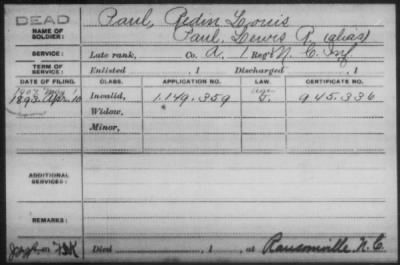 DEAD
NAME OF SOLDIER: Paul, Redin Louis
Paul, Lewis R (alias)
SERVICE: Late rank, Co. A, 1 Reg't N. C. Inf
TERM OF SERVICE: Enlisted , 1 Discharged , 1
DATE OF FILING. CLASS. APPLICATION NO. LAW. CERTIFICATE NO.
1907 May 1 age
1893 Apr. 10 Invalid, 1.149.359 S. 945.336
Widow,
Minor,
ADDITIONAL SERVICES:
REMARKS:
Died , 1 , at Ransomville N. C.